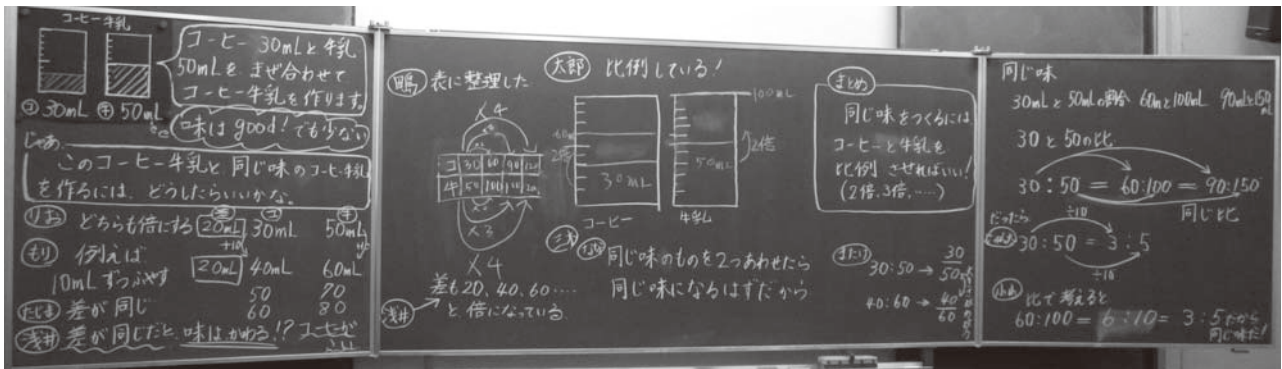 コーヒー牛乳
コ 30mL 牛 50mL
コーヒー 30mLと牛乳
50mLを まぜ合わせて
コーヒー牛乳を作ります。
味はgood!でも少ない
じゃあ
このコーヒー牛乳と同じ味のコーヒー牛乳
を作るには、どうしたらいいかな。
りお どちらも倍にする
差 コ 牛
20mL 30mL 50mL
もり 例えば
10mLずつふやす
+10
20mL 40mL 60mL
50 70
60 80
たじま 差が同じ
浅井 差が同じだと、味はかわる!?
鴨 表に整理した
×4
コ 30 60 90 120
牛 50 100
×3
×4
浅井 差も20、40、60……
と、倍になっている
太郎 比例している!
2倍
30mL
コーヒー
100mL
50mL
2倍
牛乳
同じ味のものを2つあわせたら
同じ味になるはずだから
まとめ
同じ味をつくるには
コーヒーと牛乳を
比例させればいい!
(2倍、3倍、……)
30:50 → 30/50
40:60 → 40/60
同じ味
30mLと50mLの割合 60mと100mL 90mLと150mL
30と50の比
30:50 = 60:100 = 90:150
同じ比
だったら
÷10
30:50 = 3:5
÷10
比で考えると
60:100 = 6:10 = 3:5だから
同じ味だ!